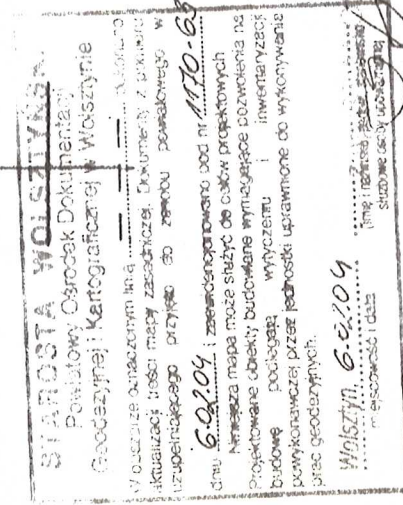 STAROSTA WOLSZTYŃSKI
Powiatowy Ośrodek Dokumentacji
Geodezyjnej i Kartograficznej w Wolsztynie
W obszarze oznaczonym linią
aktualizacji treści mapy zasadniczej. Dokumenty z pomiaru
uzupełniającego przyjęto do zasobu powiatowego w
dniu 6.02.04 i zaewidencjonowano pod nr 1170-63
Niniejsza mapa może służyć do celów projektowych
Projektowane obiekty budowlane wymagające pozwolenia na
budowę podlegają wytyczeniu i inwentaryzacji
powykonawczej przez jednostki uprawnione do wykonywania
prac geodezyjnych.
Wolsztyn 6.02.04
miejscowość i data
służbowe osoby upoważnionej